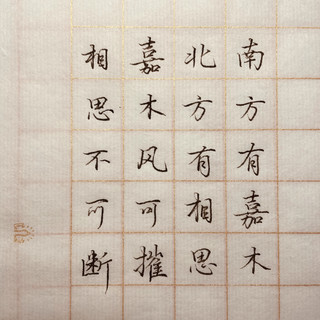 南方有嘉木
北方有相思
嘉木风可摧
相思不可断